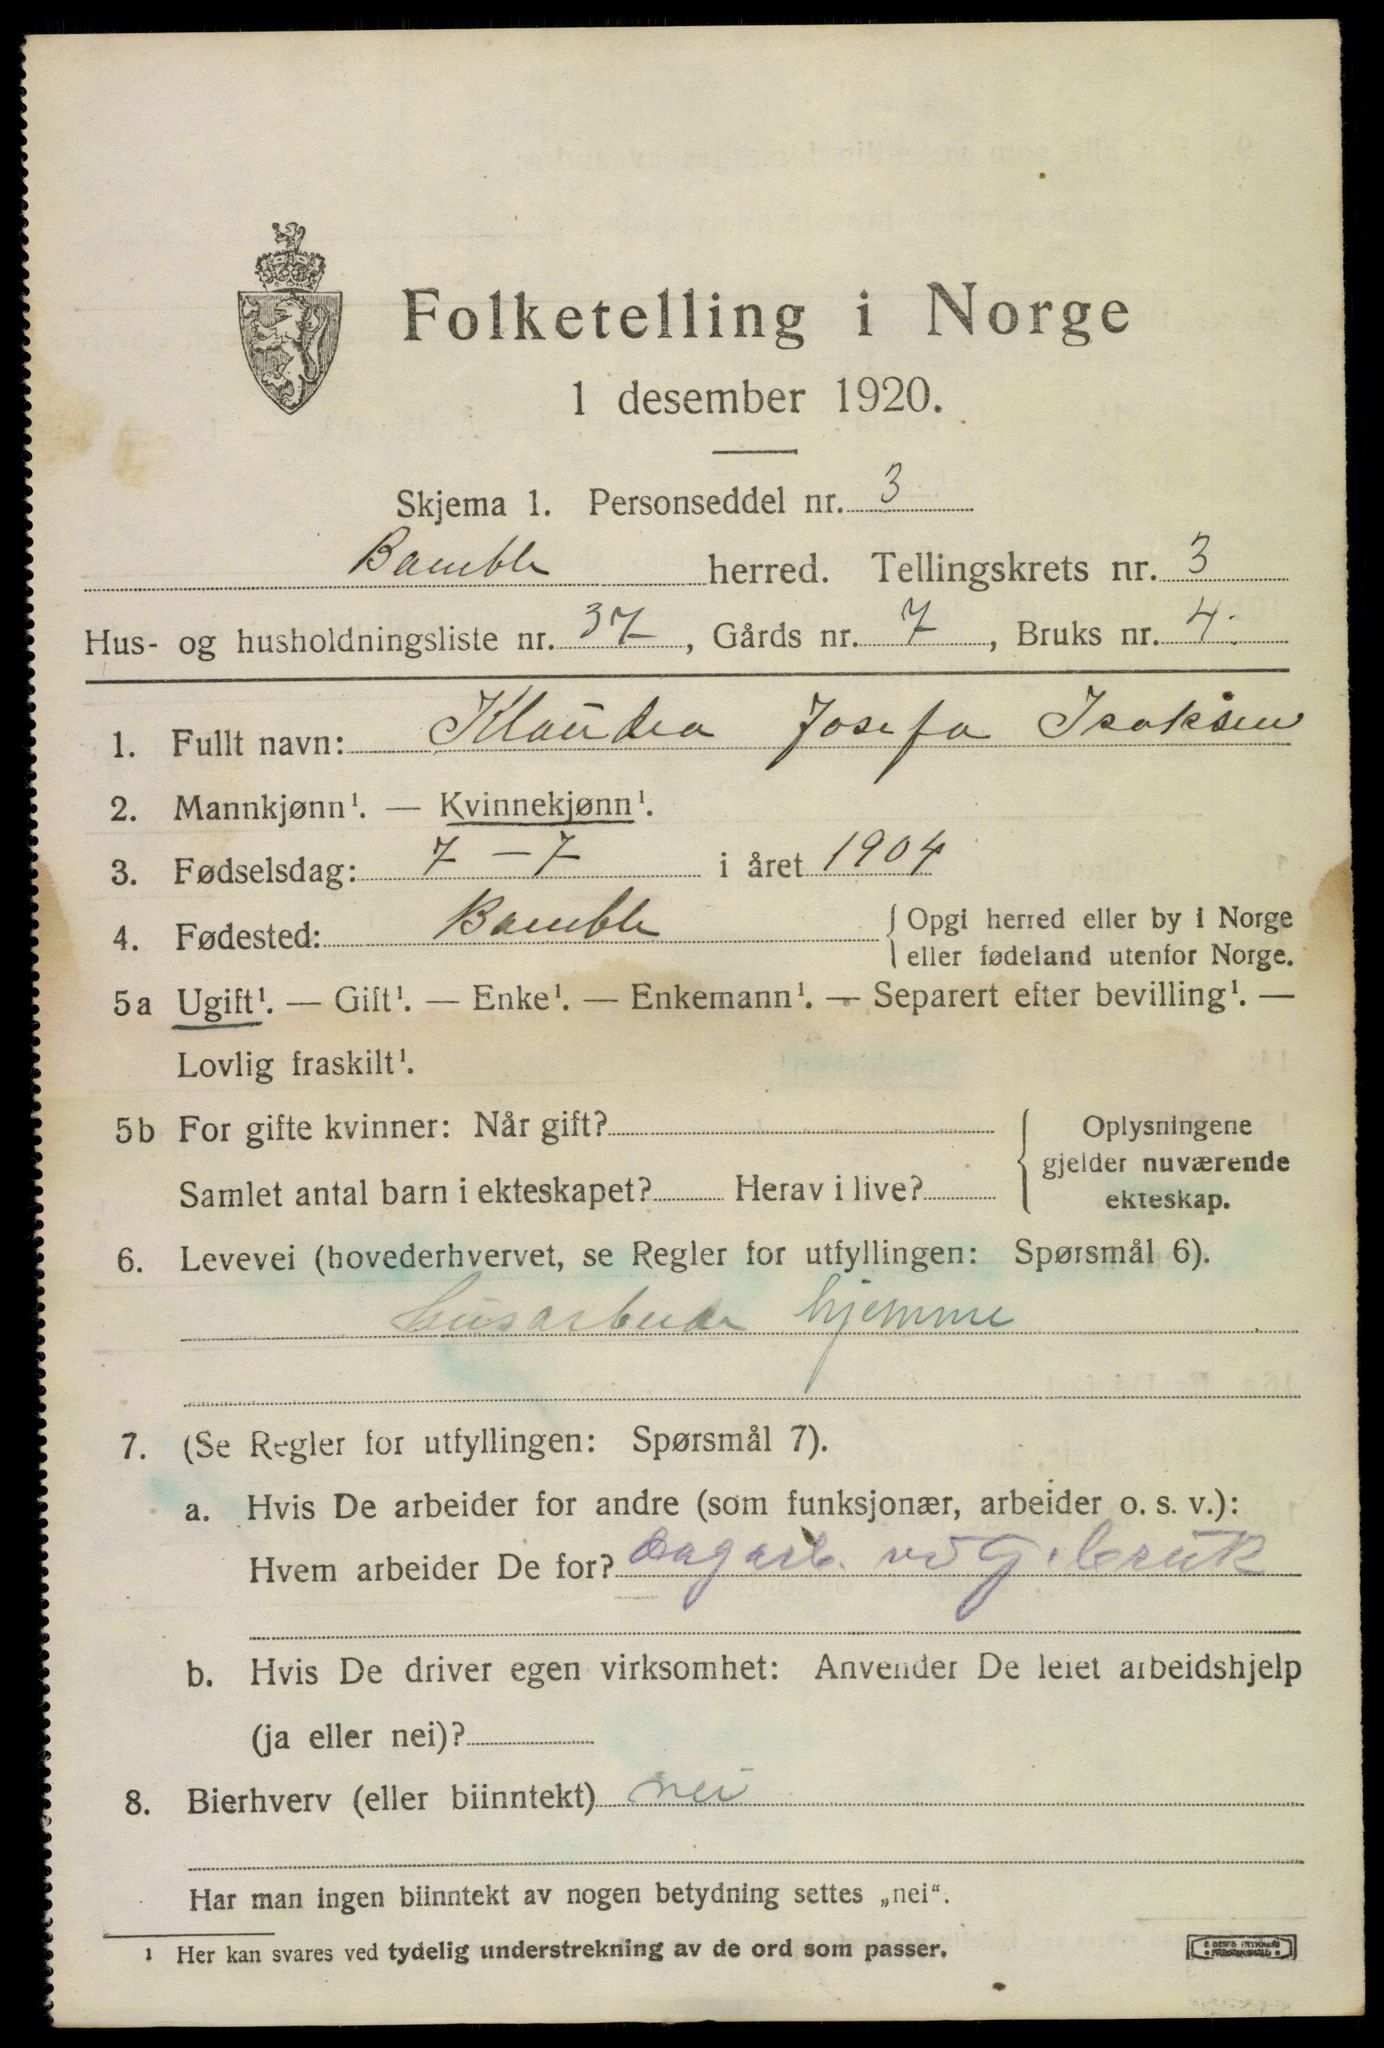 Folketelling i Norge
1 desember 1920.
Skjema 1. Personseddel nr. 3
Bamble herred. Tellingskrets nr. 3
Hus- og husholdningsliste nr. 37, Gårds nr. 7, Bruks nr. 4.
1. Fullt navn: Klaudia Josefa Isaksen
2. Mannkjønn¹. — Kvinnekjønn¹.
3. Fødselsdag: 7 – 7 i året 1904
4. Fødested: Bamble { Opgi herred eller by i Norge
eller fødeland utenfor Norge.
5a Ugift¹. — Gift¹. — Enke¹. — Enkemann¹. — Separert efter bevilling¹. —
Lovlig fraskilt¹.
5b For gifte kvinner: Når gift?
Samlet antal barn i ekteskapet? Herav i live?
{ Oplysningene
gjelder nuværende
ekteskap.
6. Levevei (hovederhvervet, se Regler for utfyllingen: Spørsmål 6).
husarbeide hjemme
7. (Se Regler for utfyllingen: Spørsmål 7).
a. Hvis De arbeider for andre (som funksjonær, arbeider o. s. v.):
Hvem arbeider De for? Dagarb. v G.bruk
b. Hvis De driver egen virksomhet: Anvender De leiet arbeidshjelp
(ja eller nei)?
8. Bierhverv (eller biinntekt) nei
Har man ingen biinntekt av nogen betydning settes „nei“.
¹ Her kan svares ved tydelig understrekning av de ord som passer.